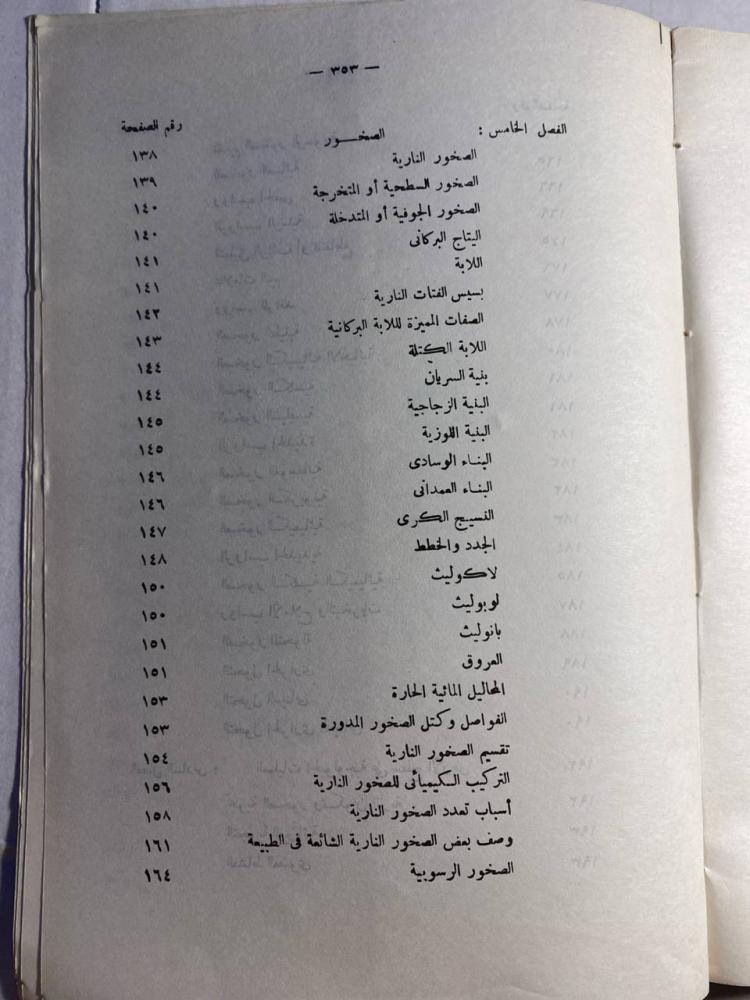 — ٣٥٣ —
الفصل الخامس : الصخـــور رقم الصفحة
الصخور النارية ١٣٨
الصخور السطحية أو المتخرجة ١٣٩
الصخور الجوفية أو المتدخلة ١٤٠
اليتاج البركانى ١٤٠
اللابة ١٤١
بسيس الفتات النارية ١٤١
الصفات المميزة لللابة البركانية ١٤٢
اللابة الكتلة ١٤٣
بنية السريان ١٤٤
البنية الزجاجية ١٤٤
البنية اللوزية ١٤٥
البناء الوسادى ١٤٥
البناء العمدانى ١٤٦
النسيج الكرى ١٤٦
الجدد والخطط ١٤٧
لاكوليث ١٤٨
لوبوليث ١٥٠
باثوليث ١٥٠
العروق ١٥١
المحاليل المائية الحارة ١٥١
الفواصل وكتل الصخور المدورة ١٥٣
تقسيم الصخور النارية ١٥٣
التركيب الكيميائى للصخور النارية ١٥٤
أسباب تعدد الصخور النارية ١٥٦
وصف بعض الصخور النارية الشائعة فى الطبيعة ١٥٨
الصخور الرسوبية ١٦١
١٦٤